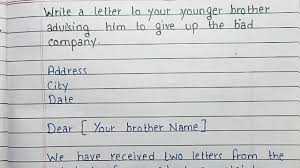 Write a letter to your younger brother
advising him to give up the bad
company.
Address
City
Date
Dear [ Your brother Name ]
We have received two letters from the